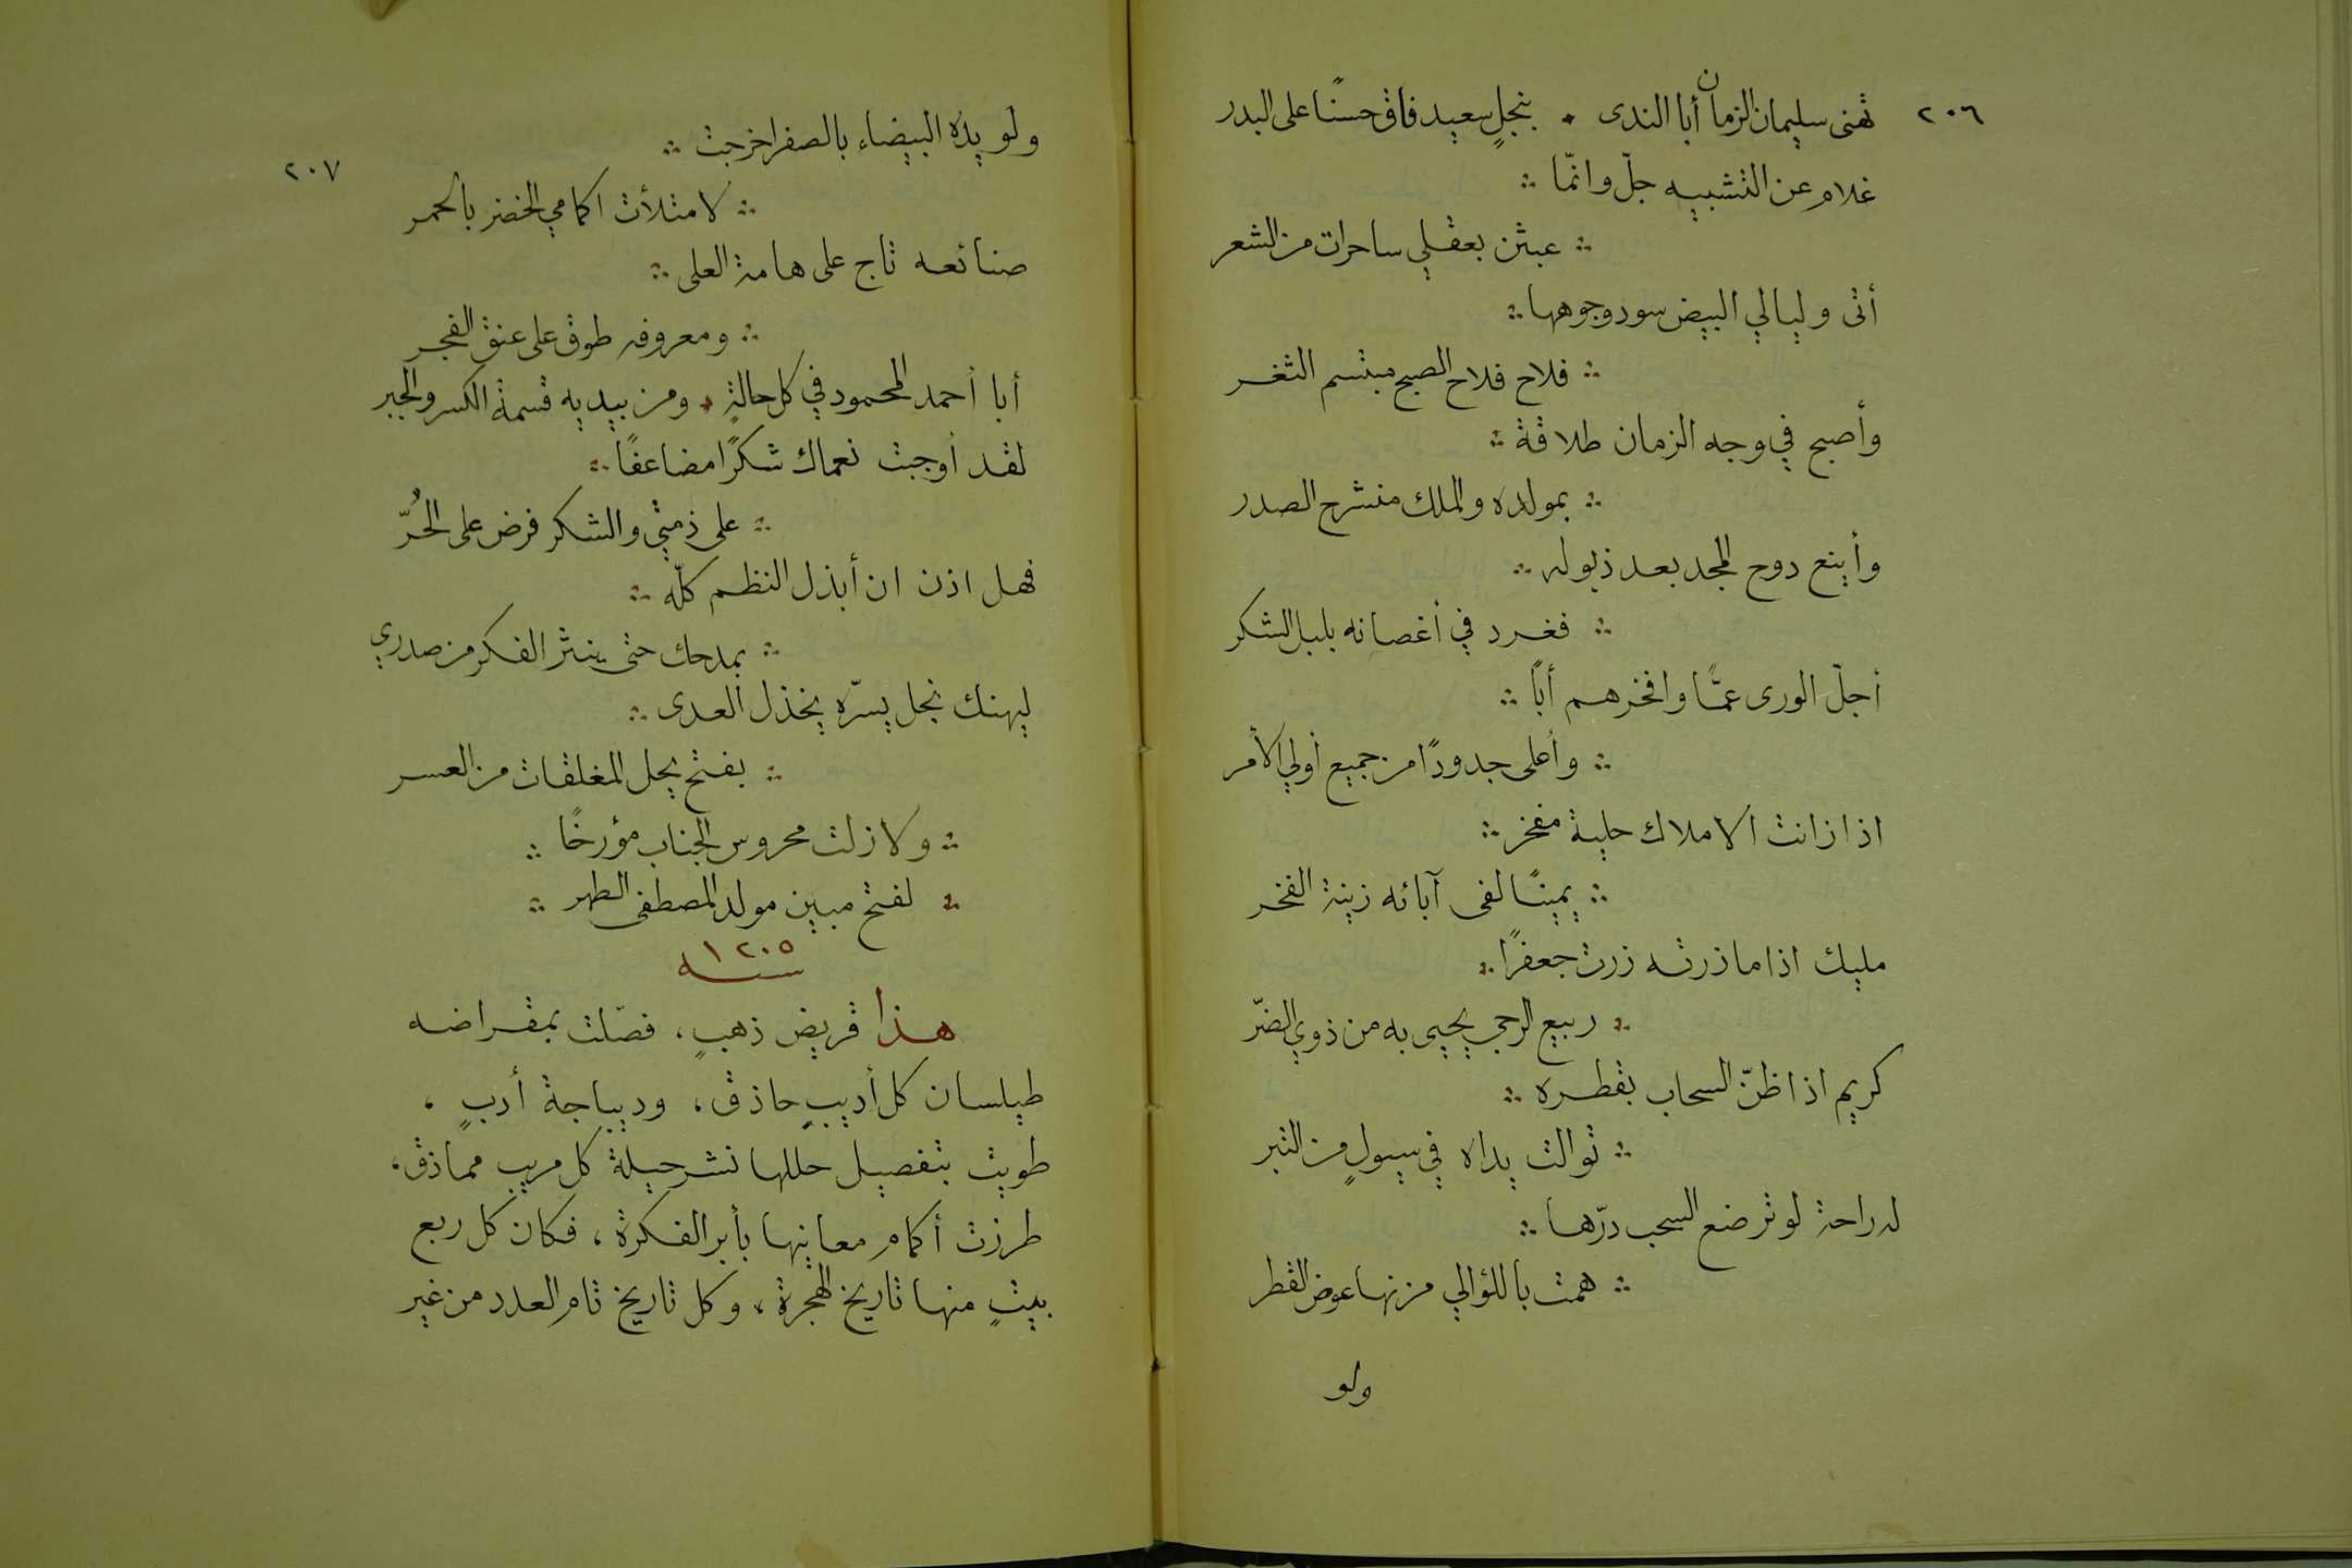 ٢٠٦
تهنى سليمان الزمان أبا الندى • بنجلٍ سعيد فاق حسنًا على البدر
غلام عن التشبيه جلّ وانمّا ∴
∴ عبثن بعقلي ساحرات من الشعر
أتى وليالي البيض سود وجوهها ∴
∴ فلاح فلاح الصبح مبتسم الثغر
وأصبح في وجه الزمان طلاقة ∴
∴ بمولده والملك منشرح الصدر
وأينع دوح المجد بعد ذبوله ∴
∴ فغرد في أغصانه بلبل الشكر
أجلّ الورى عمًّا وافخرهم أبًا ∴
∴ وأعلى جدودًا من جميع أولي الأمر
اذا زانت الاملاك حلية مفخر ∴
∴ يمينًا لفى آبائه زينة الفخر
مليك اذا ما زرته زرت جعفرًا ∴
∴ ربيع الرجى يحيى به من ذوي الضّر
كريم اذا ظنّ السحاب بقطره ∴
∴ توالت يداه في سيولٍ من التبر
له راحة لو ترضع السحب درّها ∴
∴ همت باللؤالي مزنها عوض القطر
ولو
٢٠٧
ولو يده البيضاء بالصفر اخرجت ∴
∴ لامتلأت اكمامي الخضر بالحمر
صنائعه تاج على هامة العلى ∴
∴ ومعروفه طوق على عنق الفجر
أبا أحمد المحمود في كل حالةٍ • ومن بيديه قسمة الكسر والجبر
لقد أوجبت نعماك شكرًا مضاعفًا ∴
∴ على ذمتي والشكر فرض على الحُرّ
فهل اذن ان أبذل النظم كلّه ∴
∴ بمدحك حتى ينثر الفكر من صدري
ليهنك نجل يسرّه يخذل العدى ∴
∴ بفتح يحل المغلقات من العسر
∴ ولا زلت محروس الجناب مؤرخًا ∴
∴ لفتح مبين مولد المصطفى الطهر ∴
١٢٠٥
سنه
هذا قريض ذهبٍ، فصّلت بمقراضه
طيلسان كل أديبٍ حاذق، وديباجة أدبٍ،
طويت بتفصيل حللها نشر حيلة كل مريب مماذق،
طرزت أكمام معانيها بأبر الفكرة، فكان كل ربع
بيتٍ منها تاريخ الهجرة، وكل تاريخ تام العدد من غير